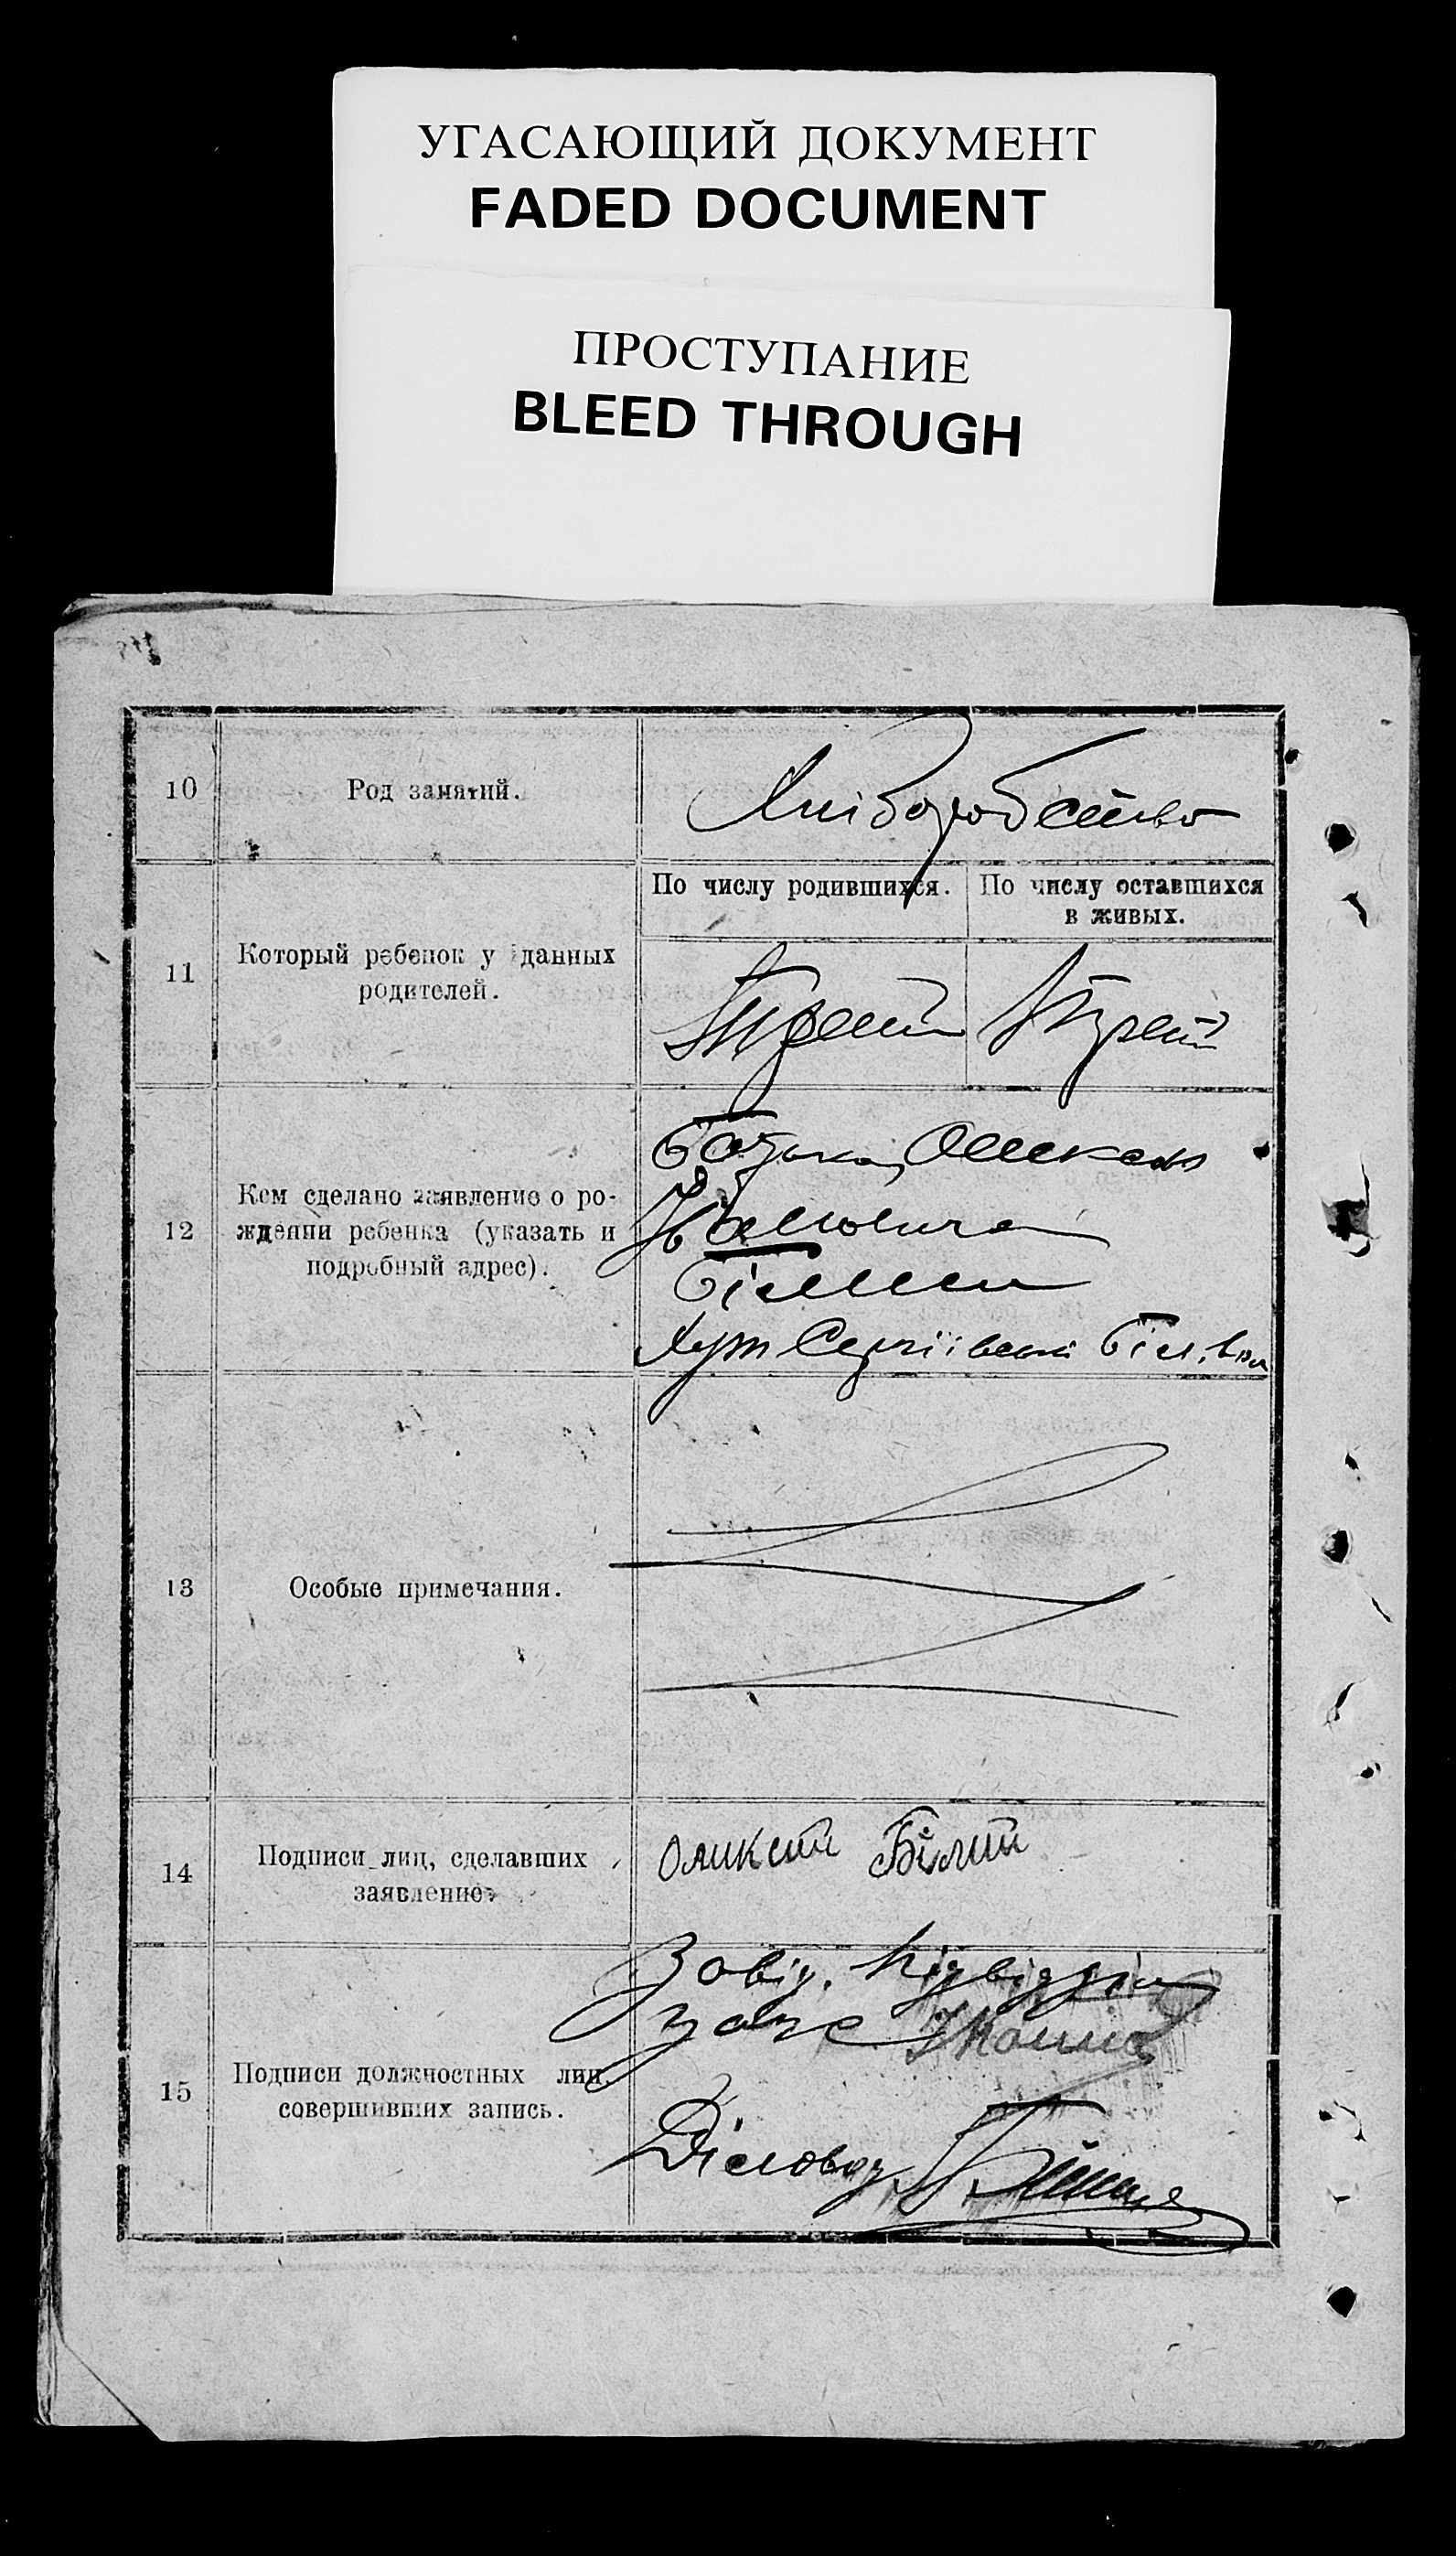 УГАСАЮЩИЙ ДОКУМЕНТ
FADED DOCUMENT
ПРОСТУПАНИЕ
BLEED THROUGH
10
Род занятий.
Хліборобство
11
Который ребенок у данных
родителей.
По числу родившихся.
По числу оставшихся
в живых.
Третій
Третій
12
Кем сделано заявление о ро-
ждении ребенка (указать и
подробный адрес).
Батько, Олексій
Білий
Хут Сергіївський Біл. вол
13
Особые примечания.
14
Подписи лиц, сделавших
заявление.
Оликсій Білий
15
Подписи должностных лиц,
совершивших запись.
Завід. Підвідділ
Діловод